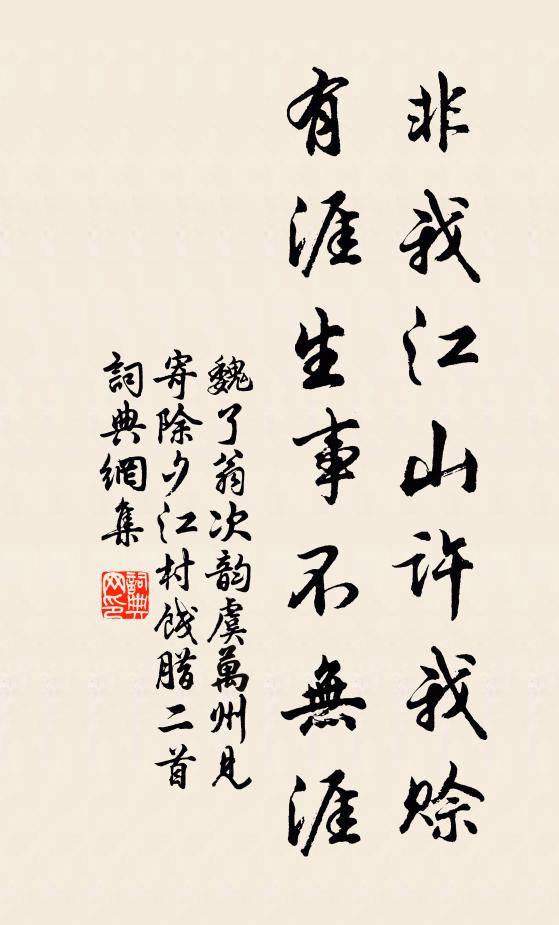 非我江山許我賒
有涯生事不無涯
魏了翁次韵虞萬州見
寄除夕江村餞腊二首
詞典網集
詞典
网印